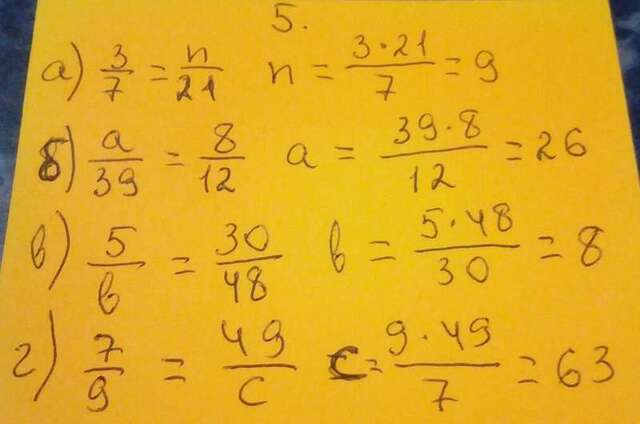 5.
а) 3/7 = n/21 n = 3·21/7 = 9
б) a/39 = 8/12 a = 39·8/12 = 26
в) 5/b = 30/48 b = 5·48/30 = 8
г) 7/9 = 49/c c = 9·49/7 = 63